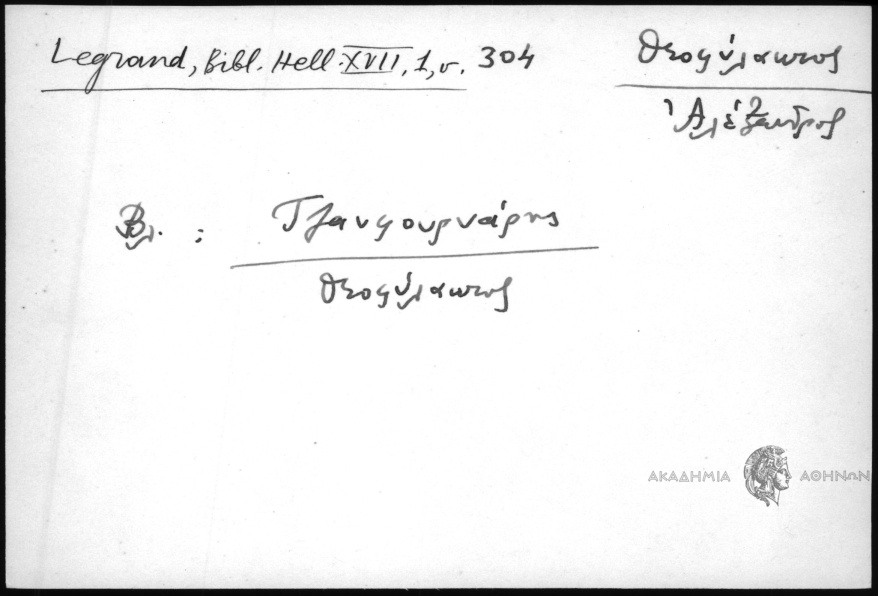 Legrand, Bibl. Hell. XVII, 1, σ. 304
Θεοφύλακτος
Ἀλέξανδρος
Βλ. : Τζανφουρνάρης
Θεοφύλακτος
ΑΚΑΔΗΜΙΑ ΑΘΗΝΩΝ